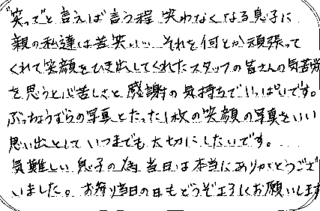 笑ってと言えば言う程、笑わなくなる息子に
親の私達は苦笑い… それを何とか頑張って
くれて笑顔をひき出してくれたスタッフの皆さんの気苦労
を思うと心苦しさと感謝の気持ちでいっぱいです。
ぶっちょうずらの写真とたった1枚の笑顔の写真をいい
思い出として いつまでも大切にしたいです。
気難しい息子の為、当日は本当にありがとうござ
いました。お参り当日の日もどうぞよろしくお願いします